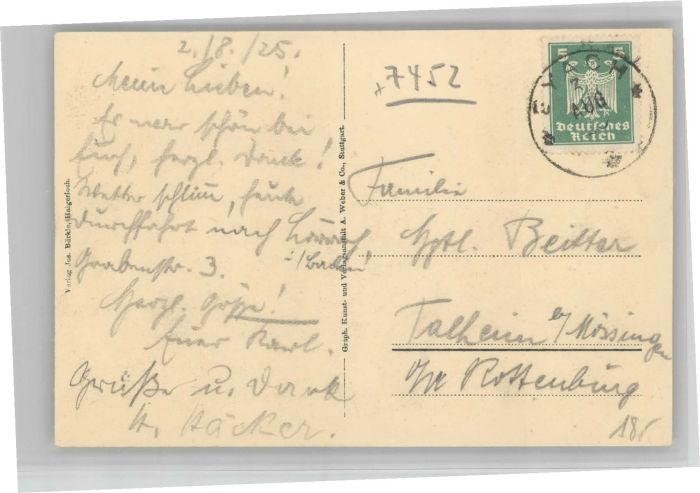 2./8./25.
Meine Lieben!
Es war schön bei
Euch, herzl. Dank!
Wetter schlimm, heute
Durchfahrt nach Lörrach,
Grabenstr. 3. i/Baden!
Herzl. Grüße!
Euer Karl.
Grüße u. Dank
H. Häcker.
Verlag Jos. Bürkle, Haigerloch.
Graph. Kunst- und Verlagsanstalt A. Weber & Co., Stuttgart.
+7452
5 5
Deutsches
Reich
EYACH
3
AUG
Familie
Beitter
Talheim b/Mössingen
Rottenburg
18,-